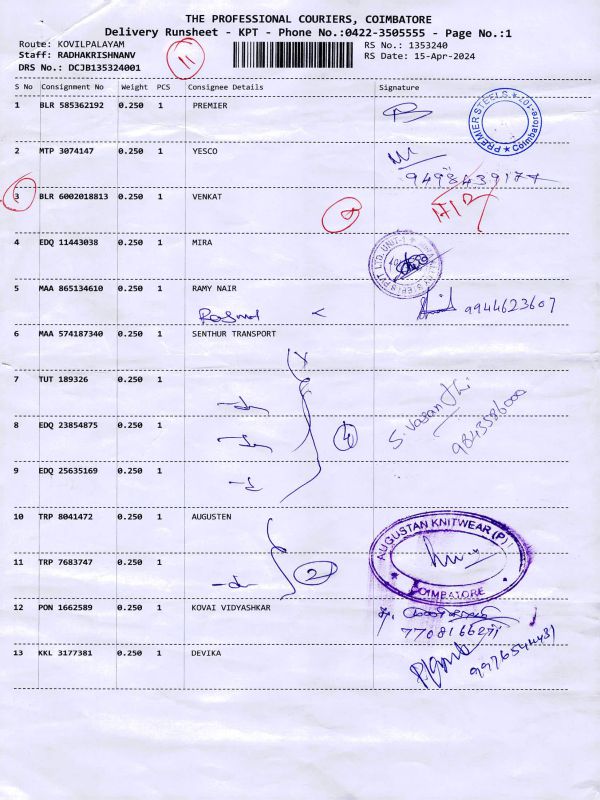 THE PROFESSIONAL COURIERS, COIMBATORE
Delivery Runsheet - KPT - Phone No.:0422-3505555 - Page No.:1
Route: KOVILPALAYAM RS No.: 1353240
Staff: RADHAKRISHNANV 11 RS Date: 15-Apr-2024
DRS No.: DCJB135324001
S No Consignment No Weight PCS Consignee Details Signature
1 BLR 585362192 0.250 1 PREMIER
PREMIER STEELS * Coimbatore
2 MTP 3074147 0.250 1 YESCO
9498439177
3 BLR 6002018813 0.250 1 VENKAT
4 EDQ 11443038 0.250 1 MIRA
5 MAA 865134610 0.250 1 RAMY NAIR
9944623607
6 MAA 574187340 0.250 1 SENTHUR TRANSPORT
7 TUT 189326 0.250 1
S. Vasanthi
8 EDQ 23854875 0.250 1 4
9843586000
9 EDQ 25635169 0.250 1
10 TRP 8041472 0.250 1 AUGUSTEN
AUGUSTAN KNITWEAR (P)
11 TRP 7683747 0.250 1 2
COIMBATORE
12 PON 1662589 0.250 1 KOVAI VIDYASHKAR
13 KKL 3177381 0.250 1 DEVIKA
9976544431